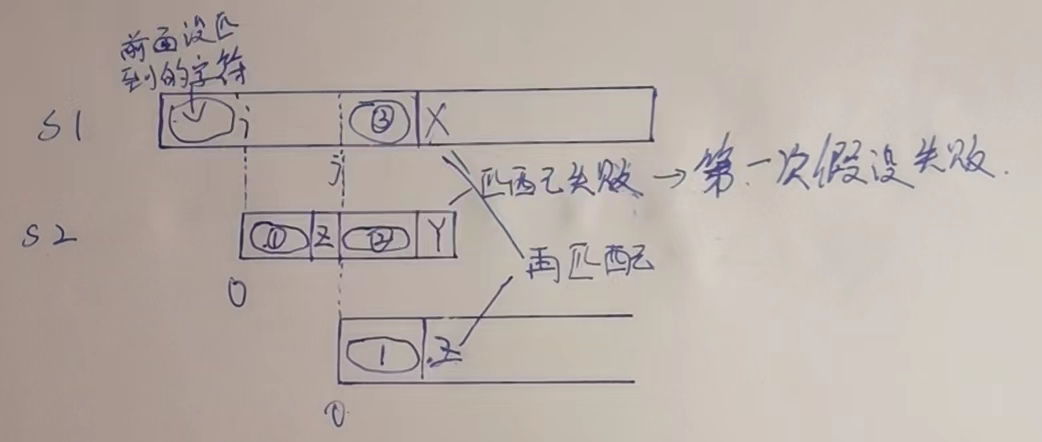 前面没匹
到的字符
S1 i ③ X
j
匹配失败 → 第一次假设失败.
S2 ① Z ② Y
再匹配
0
1 Z
0